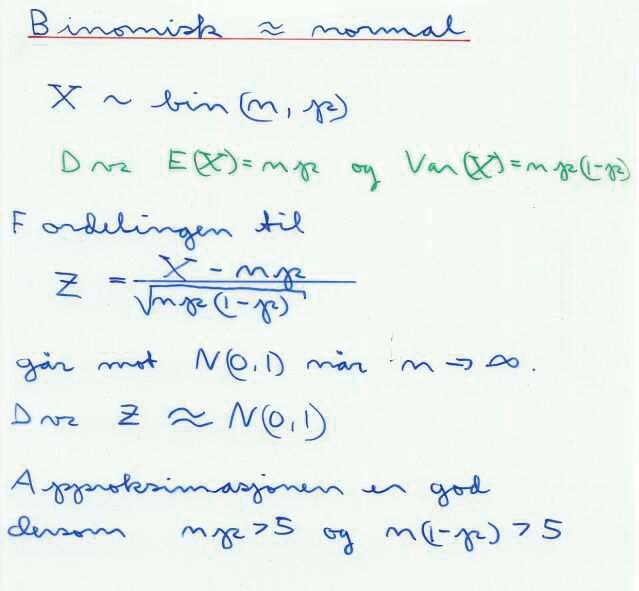 Binomisk ≈ normal
X ~ bin(n, p)
Dvs E(X) = np og Var(X) = np(1-p)
Fordelingen til
Z = X - np / √np(1-p)
går mot N(0,1) når n → ∞.
Dvs Z ≈ N(0,1)
Approksimasjonen er god
dersom np > 5 og n(1-p) > 5